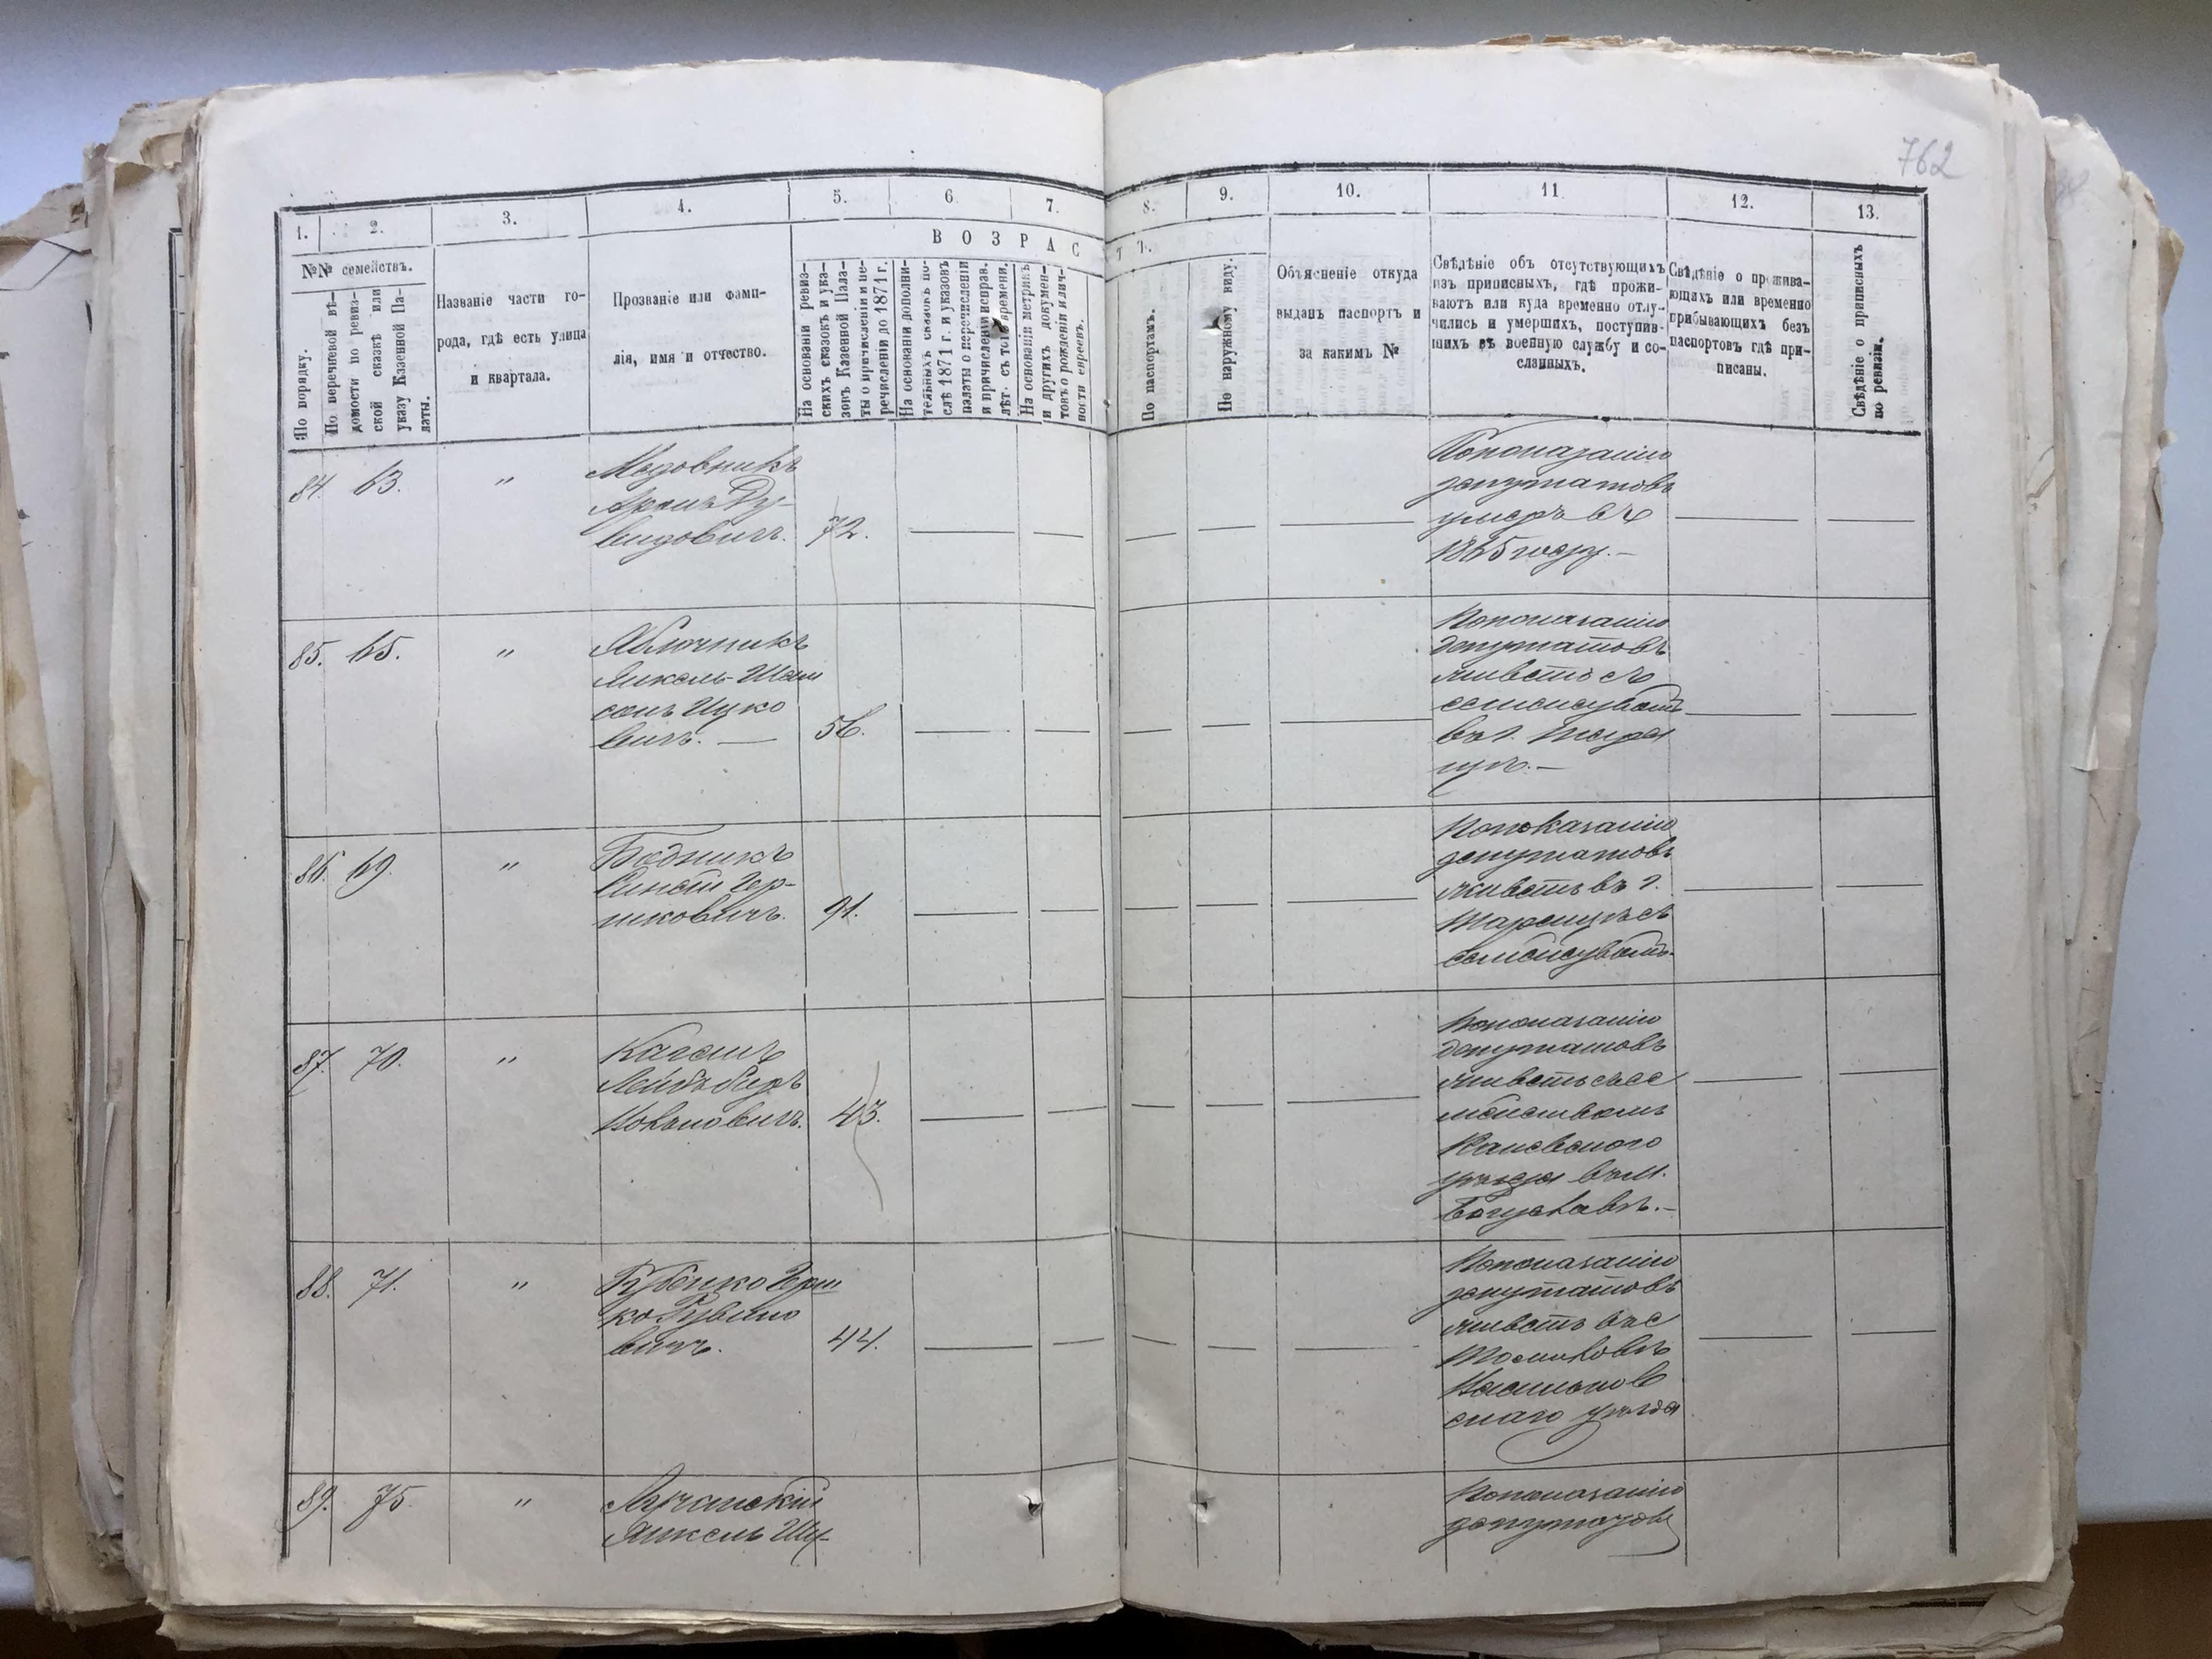 762
1.
2.
3.
4.
5.
6.
7.
8.
9.
10.
11
12.
13.
В О З Р А С Т Ъ.
№№ семействъ.
По порядку.
По перечневой вѣ-
домости по ревиз-
ской сказкѣ или
указу Казенной Па-
латы.
Названіе части го-
рода, гдѣ есть улица
и квартала.
Прозваніе или фами-
лія, имя и отчество.
На основаніи ревиз-
скихъ сказокъ и ука-
зовъ Казенной Пала-
ты о причисленіи и пе-
речисленіи до 1871 г.
На основаніи дополни-
тельныхъ сказокъ по-
слѣ 1871 г. и указовъ
палаты о перечисленіи
и причисленіи исправ.
лѣт. съ того времени.
На основаніи метрикъ
и другихъ докумен-
товъ о рожденіи и лич-
ности евреевъ.
По паспортамъ.
По наружному виду.
Объясненіе откуда
выданъ паспортъ и
за какимъ №
Свѣдѣніе объ отсутствующихъ
изъ приписныхъ, гдѣ прожи-
ваютъ или куда временно отлу-
чились и умершихъ, поступив-
шихъ въ военную службу и со-
сланныхъ.
Свѣдѣніе о прожива-
ющихъ или временно
прибывающихъ безъ
паспортовъ гдѣ при-
писаны.
Свѣдѣніе о приписныхъ
по ревизіи.
84. 63. "
Медовникъ
Аронъ Ду-
видовичъ. 72.
По показанію
депутатовъ
умеръ въ
1865 году.—
85. 65. "
Яблочникъ
Янкель Шом
сонъ Ицко
вичъ.— 56.
По показанію
депутатовъ
живетъ съ
семействомъ
въ г. Тара
щѣ.—
86. 69. "
Бодникъ
Гер-
шковичъ. 91.
По показанію
депутатовъ
живетъ въ г.
Таращѣ съ
семействомъ.
87. 70. "
Каганъ
Лейбъ Беръ
43.
По показанію
депутатовъ
живетъ съ се
мействомъ
Каневского
уѣзда въ м.
Богуславѣ.—
88. 71. "
Герш
ко Рувино
вичъ. 44.
По показанію
депутатовъ
живетъ въ с
Васильков
скаго уѣзда
89. 75. "
Лучанскій
Янкель
По показанію
депутатовъ